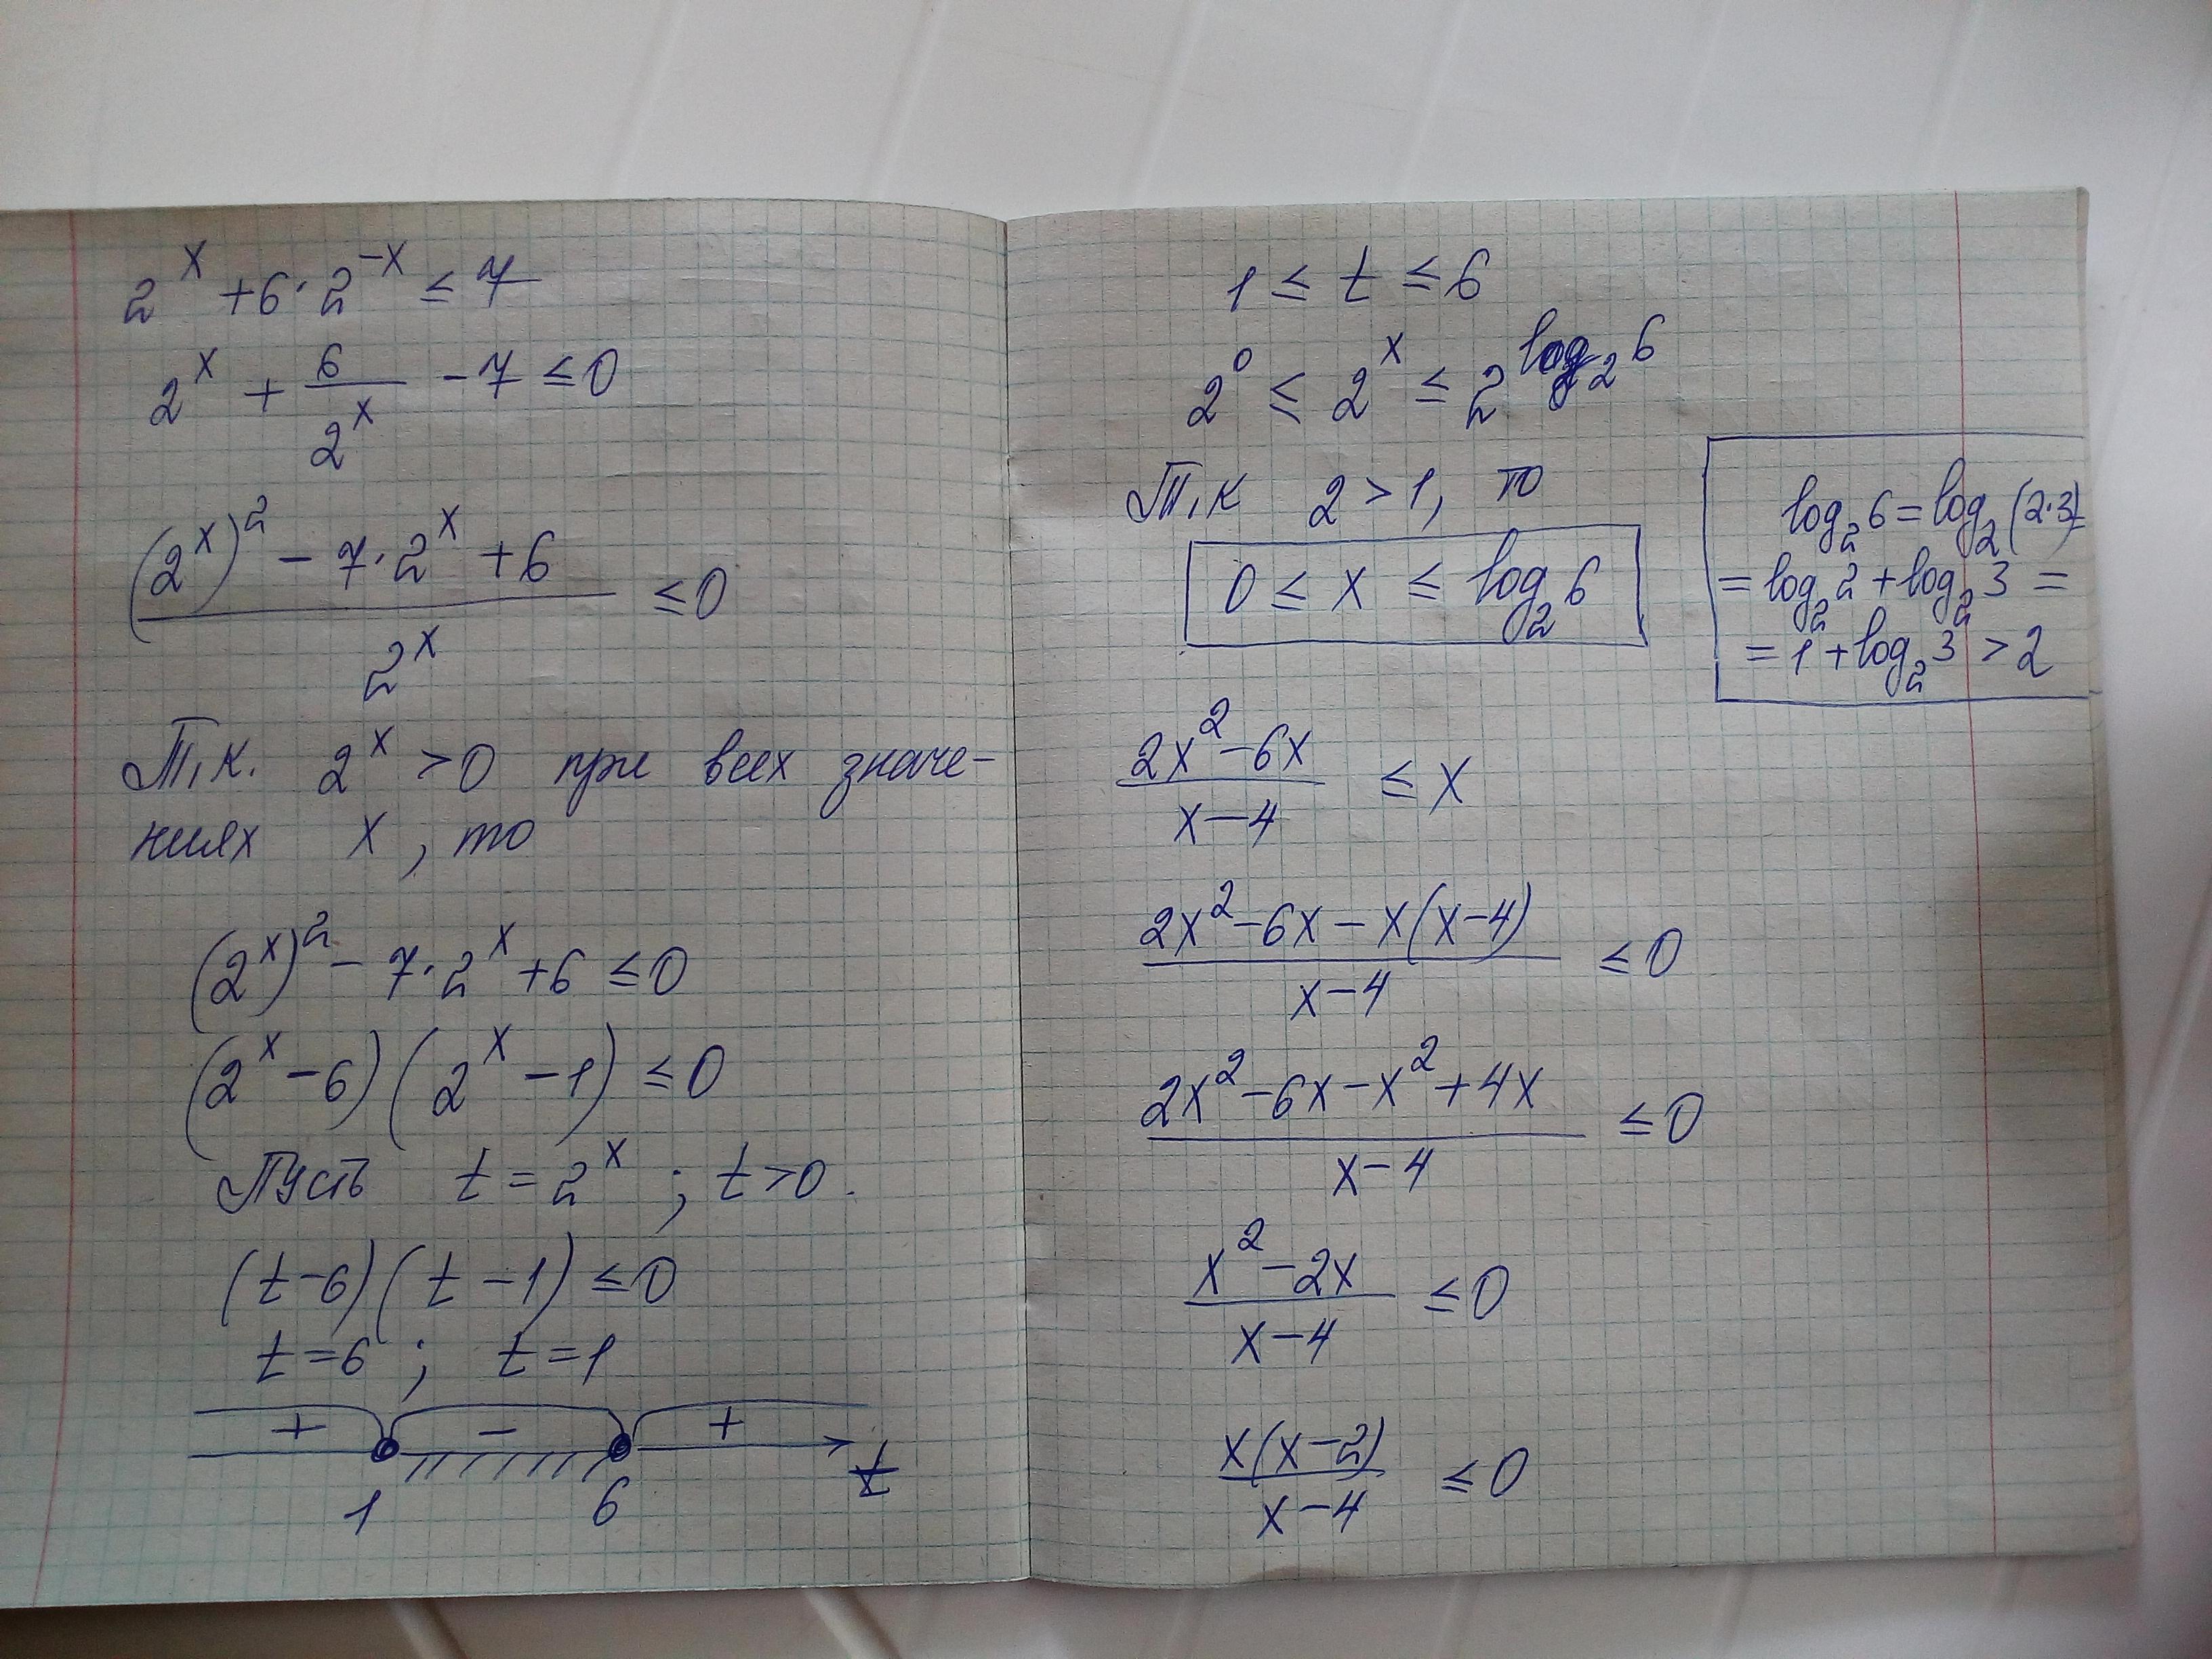 2^x + 6 · 2^-x ≤ 7
2^x + 6/2^x - 7 ≤ 0
((2^x)^2 - 7 · 2^x + 6)/2^x ≤ 0
Т.к. 2^x > 0 при всех значе-
ниях x, то
(2^x)^2 - 7 · 2^x + 6 ≤ 0
(2^x - 6)(2^x - 1) ≤ 0
Пусть t = 2^x ; t > 0.
(t - 6)(t - 1) ≤ 0
t = 6 ; t = 1
+ - +
1 6 t
1 ≤ t ≤ 6
2^0 ≤ 2^x ≤ 2^log_2 6
Т.к 2 > 1, то
0 ≤ x ≤ log_2 6
log_2 6 = log_2 (2·3) =
= log_2 2 + log_2 3 =
= 1 + log_2 3 > 2
(2x^2 - 6x)/(x - 4) ≤ x
(2x^2 - 6x - x(x - 4))/(x - 4) ≤ 0
(2x^2 - 6x - x^2 + 4x)/(x - 4) ≤ 0
(x^2 - 2x)/(x - 4) ≤ 0
x(x - 2)/(x - 4) ≤ 0